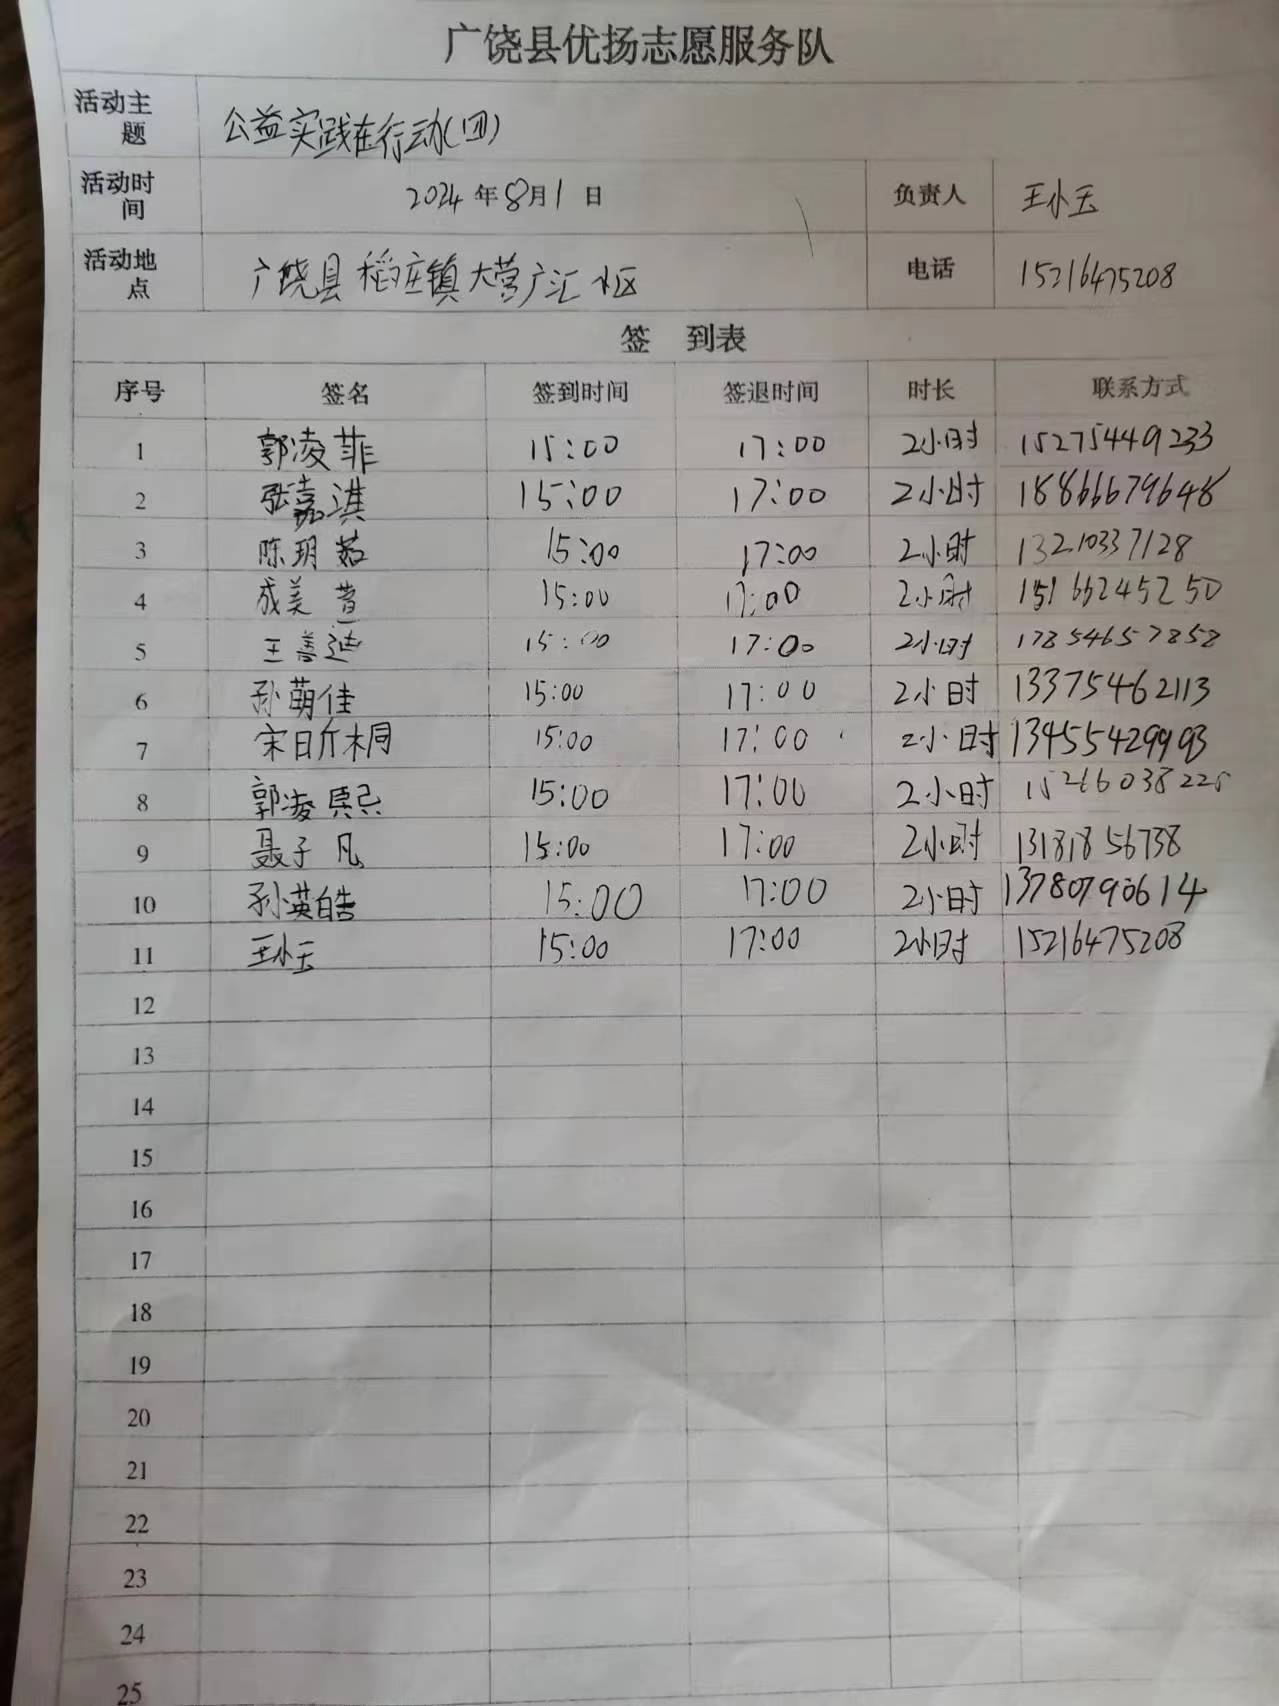 广饶县优扬志愿服务队
活动主题 公益实践在行动(四)
活动时间 2024年8月1日 负责人 王小玉
活动地点 广饶县稻庄镇大营广汇小区 电话 15216475208
签 到表
序号 签名 签到时间 签退时间 时长 联系方式
1 郭凌菲 15:00 17:00 2小时 15275449233
2 张嘉淇 15:00 17:00 2小时 18866679648
3 陈玥茹 15:00 17:00 2小时 13210337128
4 成美萱 15:00 17:00 2小时 15166245250
5 王善迪 15:00 17:00 2小时 17854657858
6 孙萌佳 15:00 17:00 2小时 13375462113
7 宋昕桐 15:00 17:00 2小时 13455429993
8 郭凌熙 15:00 17:00 2小时
9 聂子凡 15:00 17:00 2小时 13181856738
10 孙英皓 15:00 17:00 2小时 13780790614
11 王小玉 15:00 17:00 2小时 15216475208
12
13
14
15
16
17
18
19
20
21
22
23
24
25